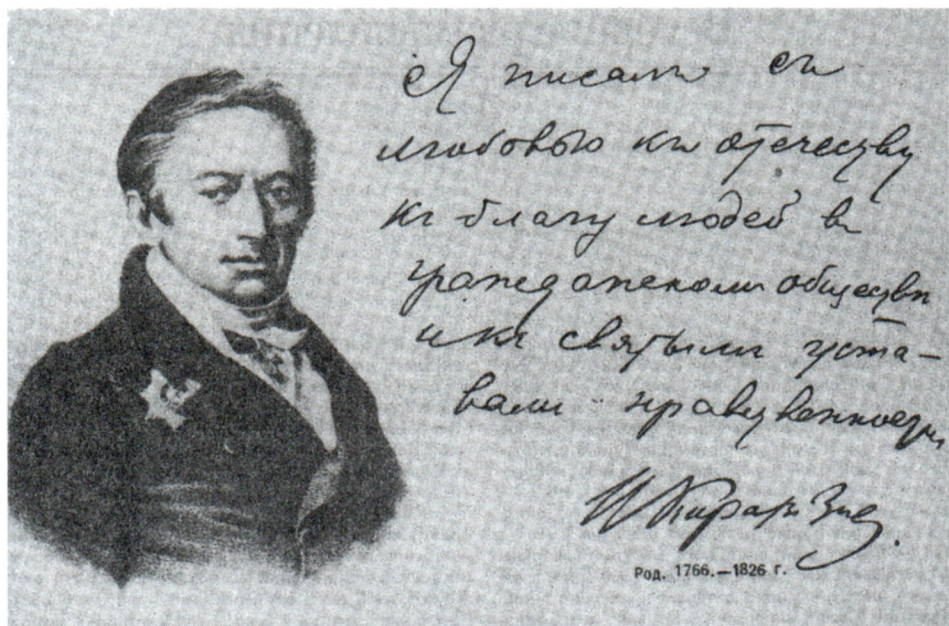 Я писалъ съ
любовью къ отечеству
къ благу людей въ
гражданскомъ обществѣ
и къ святымъ уста-
вамъ нравственности
Н Карамзинъ.
Род. 1766.—1826 г.